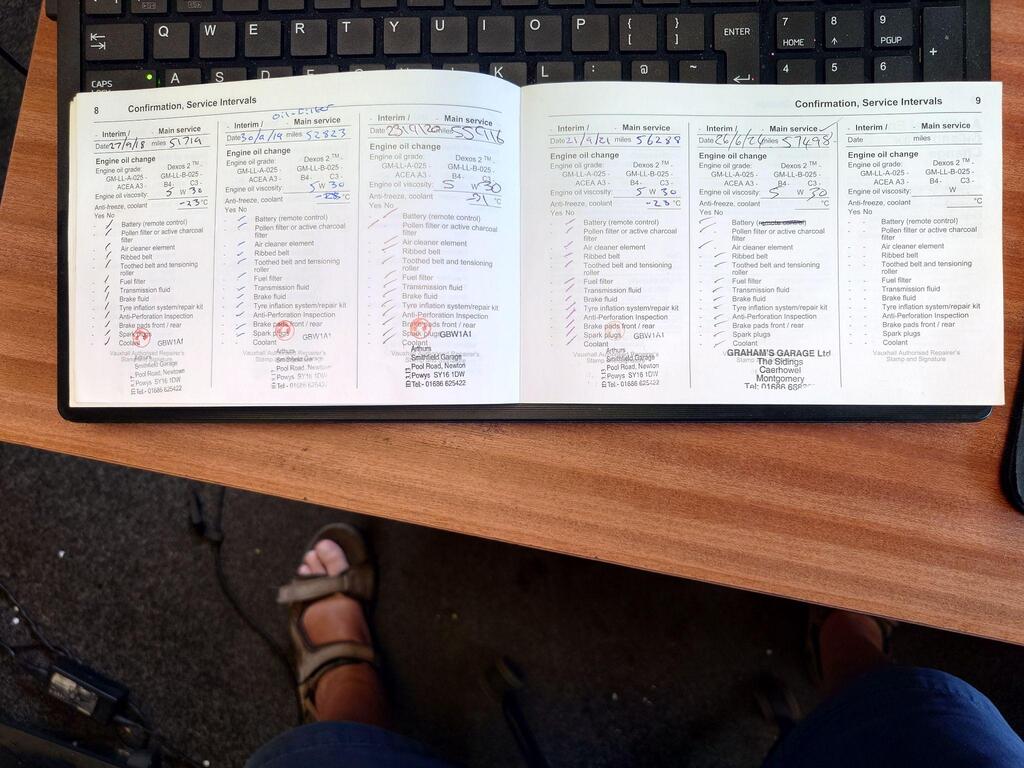 Q W E R T Y U I O P { [ } ] ENTER 7 HOME 8 9 PGUP +
CAPS A S D K L : ; @ ~ 4 5 6
8 Confirmation, Service Intervals
oil-filter
Interim / Main service
Date 27/9/18 miles 51719
Engine oil change
Engine oil grade: Dexos 2 ™ -
GM-LL-A-025 - GM-LL-B-025 -
ACEA A3 - B4 - C3 -
Engine oil viscosity: 5 W 30
Anti-freeze, coolant -23 °C
Yes No
Battery (remote control)
Pollen filter or active charcoal
filter
Air cleaner element
Ribbed belt
Toothed belt and tensioning
roller
Fuel filter
Transmission fluid
Brake fluid
Tyre inflation system/repair kit
Anti-Perforation Inspection
Brake pads front / rear
Spark plugs
Coolant GBW1A1
Vauxhall Authorised Repairer's
Stamp and Signature
Arthurs
Smithfield Garage
Pool Road, Newtown
Powys SY16 1DW
Tel:- 01686 625422
Interim / Main service
Date 30/9/19 miles 52823
Engine oil change
Engine oil grade: Dexos 2 ™ -
GM-LL-A-025 - GM-LL-B-025 -
ACEA A3 - B4 - C3 -
Engine oil viscosity: 5 W 30
Anti-freeze, coolant °C
Yes No
Battery (remote control)
Pollen filter or active charcoal
filter
Air cleaner element
Ribbed belt
Toothed belt and tensioning
roller
Fuel filter
Transmission fluid
Brake fluid
Tyre inflation system/repair kit
Anti-Perforation Inspection
Brake pads front / rear
Spark plugs
Coolant GBW1A1
Arthurs
Smithfield Garage
Pool Road, Newtown
Powys SY16 1DW
Tel:- 01686 625422
Interim / Main service
Date 23/9/20 miles 55716
Engine oil change
Engine oil grade: Dexos 2 ™ -
GM-LL-A-025 - GM-LL-B-025 -
ACEA A3 - B4 - C3 -
Engine oil viscosity: 5 W 30
Anti-freeze, coolant -21 °C
Yes No
Battery (remote control)
Pollen filter or active charcoal
filter
Air cleaner element
Ribbed belt
Toothed belt and tensioning
roller
Fuel filter
Transmission fluid
Brake fluid
Tyre inflation system/repair kit
Anti-Perforation Inspection
Brake pads front / rear
Spark plugs
Coolant GBW1A1
Arthurs
Smithfield Garage
Pool Road, Newtown
Powys SY16 1DW
Tel:- 01686 625422
Confirmation, Service Intervals 9
Interim / Main service
Date 21/9/21 miles 56288
Engine oil change
Engine oil grade: Dexos 2 ™ -
GM-LL-A-025 - GM-LL-B-025 -
ACEA A3 - B4 - C3 -
Engine oil viscosity: 5 W 30
Anti-freeze, coolant -23 °C
Yes No
Battery (remote control)
Pollen filter or active charcoal
filter
Air cleaner element
Ribbed belt
Toothed belt and tensioning
roller
Fuel filter
Transmission fluid
Brake fluid
Tyre inflation system/repair kit
Anti-Perforation Inspection
Brake pads front / rear
Spark plugs
Coolant GBW1A1
Arthurs
Smithfield Garage
Pool Road, Newtown
Powys SY16 1DW
Tel:- 01686 625422
Interim / Main service
Date 26/6/24 miles 57498
Engine oil change
Engine oil grade: Dexos 2 ™ -
GM-LL-A-025 - GM-LL-B-025 -
ACEA A3 - B4 - C3 -
Engine oil viscosity: 5 W 30
Anti-freeze, coolant °C
Yes No
Battery (remote control)
Pollen filter or active charcoal
filter
Air cleaner element
Ribbed belt
Toothed belt and tensioning
roller
Fuel filter
Transmission fluid
Brake fluid
Tyre inflation system/repair kit
Anti-Perforation Inspection
Brake pads front / rear
Spark plugs
Coolant
GRAHAM'S GARAGE Ltd
The Sidings
Caerhowel
Montgomery
Tel: 01686
Interim / Main service
Date miles
Engine oil change
Engine oil grade: Dexos 2 ™ -
GM-LL-A-025 - GM-LL-B-025 -
ACEA A3 - B4 - C3 -
Engine oil viscosity: W
Anti-freeze, coolant °C
Yes No
Battery (remote control)
Pollen filter or active charcoal
filter
Air cleaner element
Ribbed belt
Toothed belt and tensioning
roller
Fuel filter
Transmission fluid
Brake fluid
Tyre inflation system/repair kit
Anti-Perforation Inspection
Brake pads front / rear
Spark plugs
Coolant
Vauxhall Authorised Repairer's
Stamp and Signature